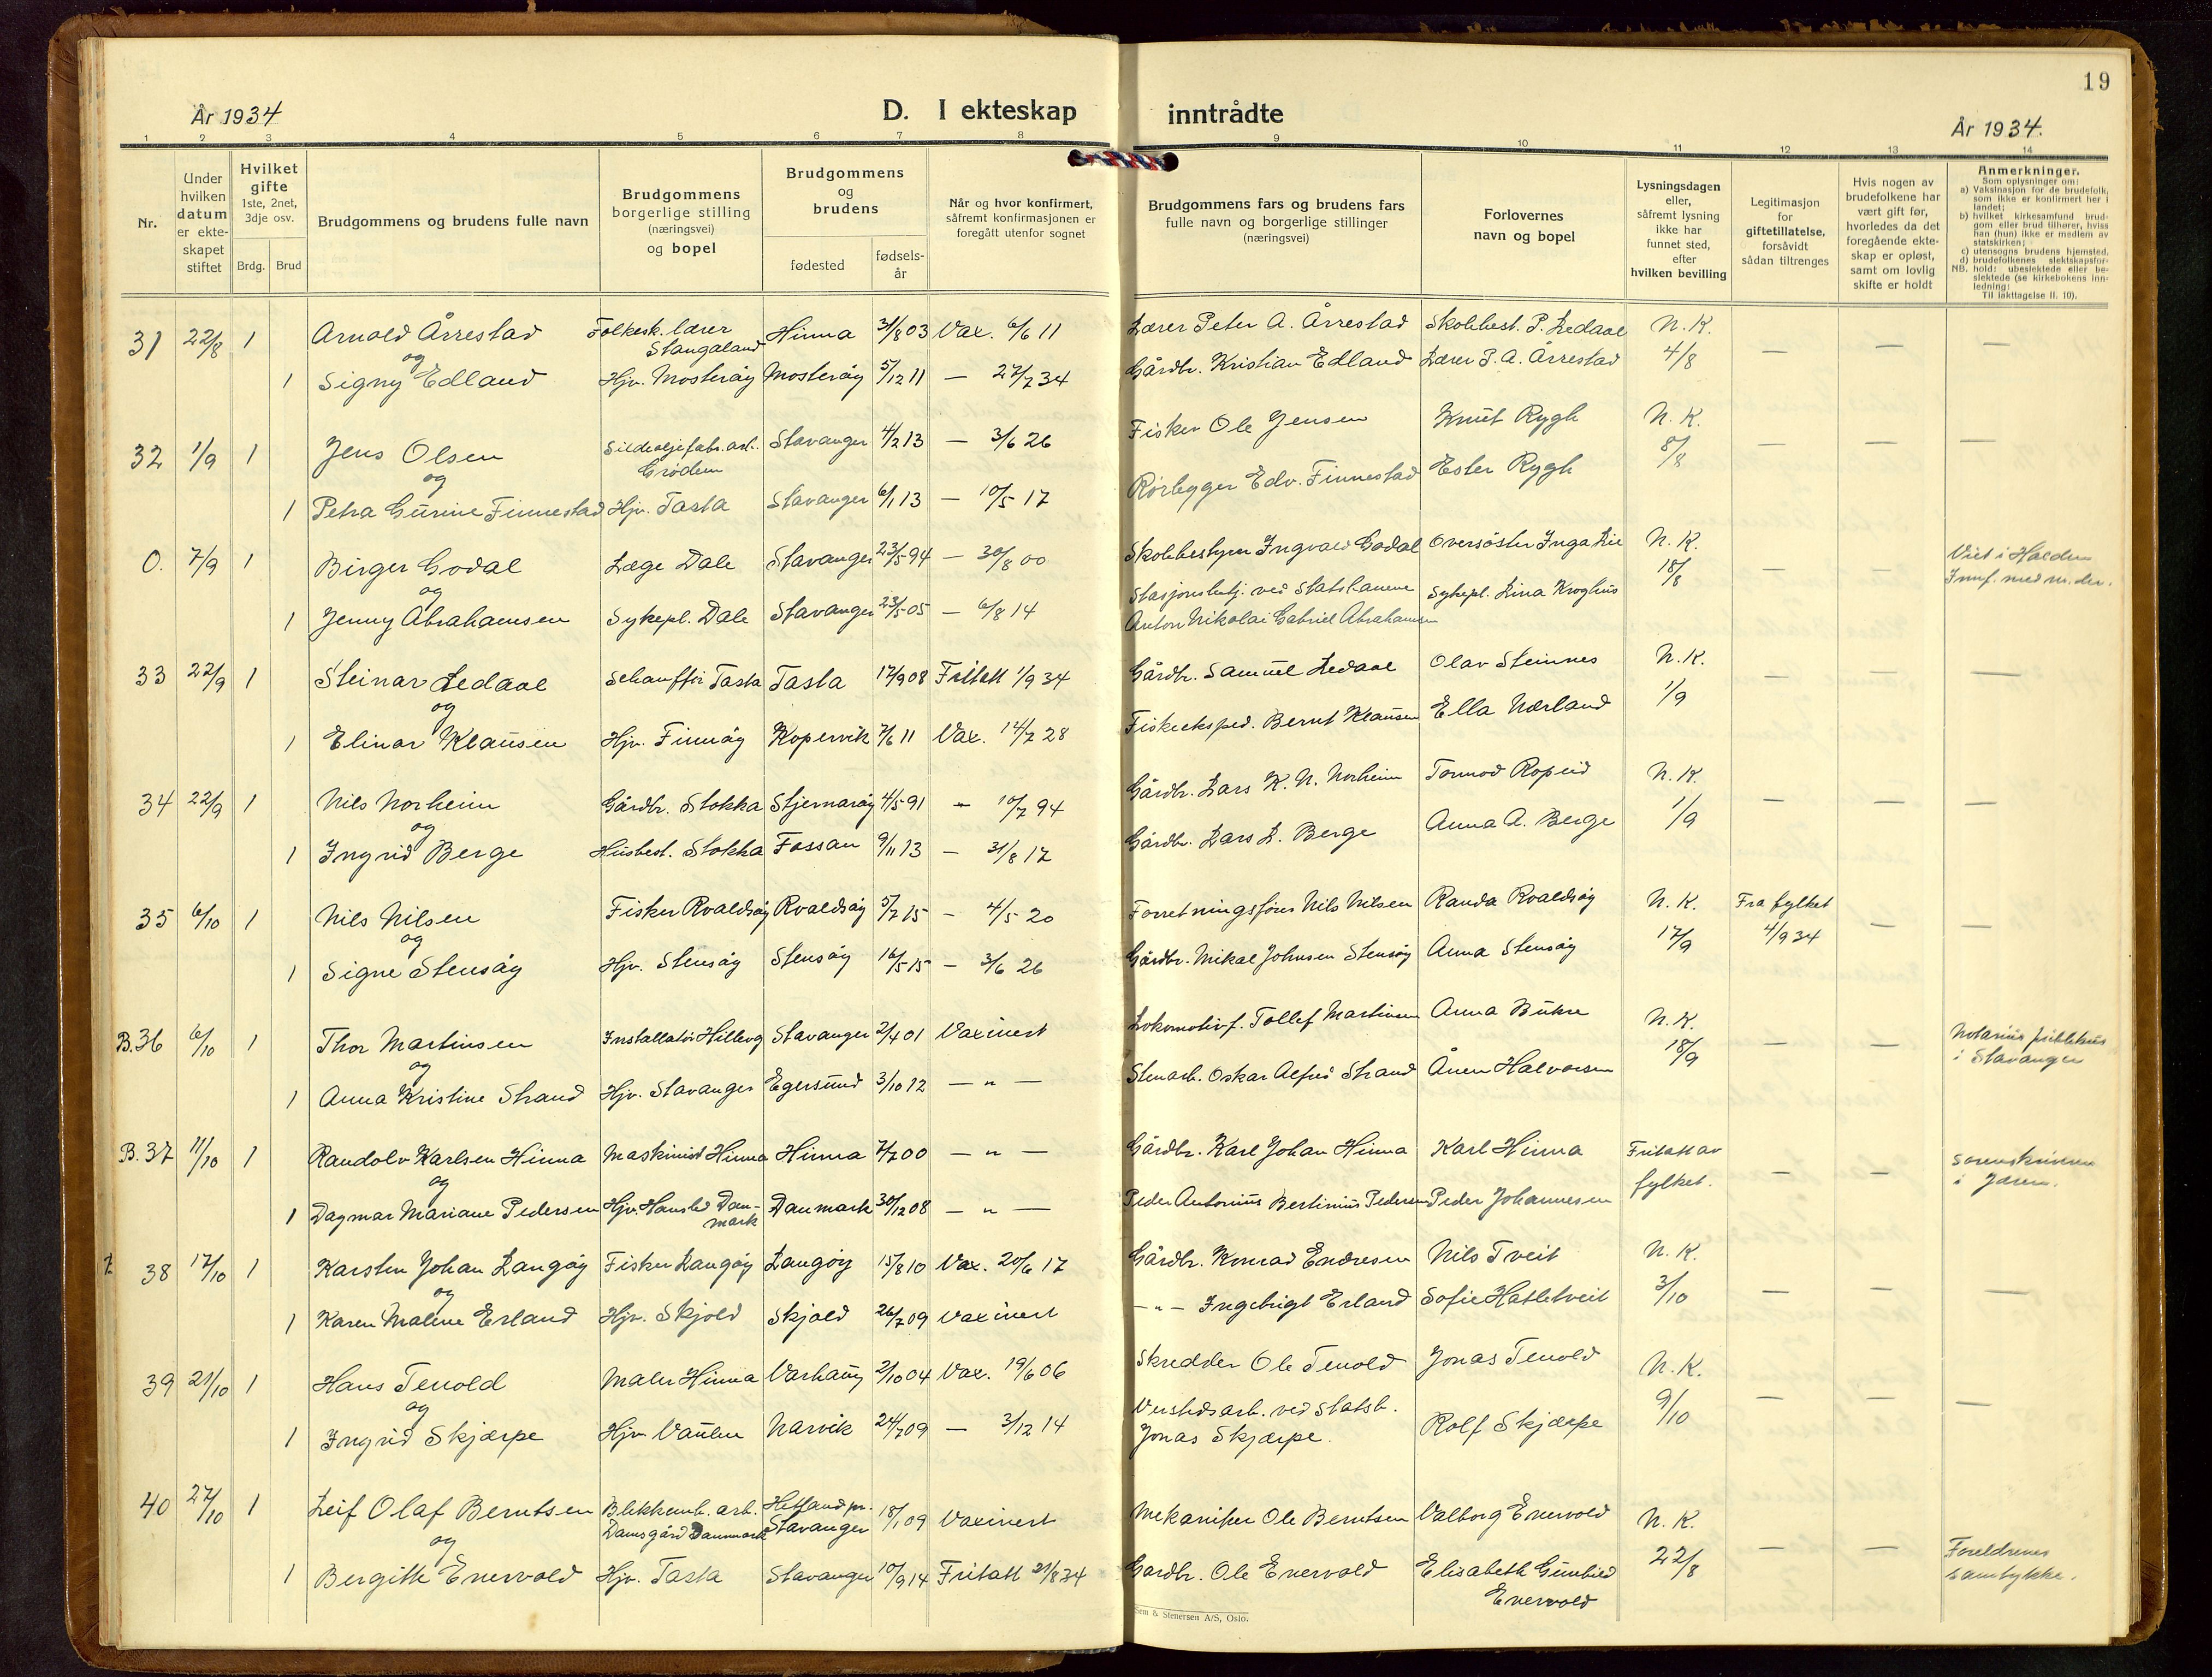 19
År 1934
D. I ekteskap inntrådte
År 1934.
1 2 3 4 5 6 7 8 9 10 11 12 13 14
Nr.
Under hvilken datum er ekte-skapet stiftet
Hvilket gifte 1ste, 2net, 3dje osv.
Brdg. Brud
Brudgommens og brudens fulle navn
Brudgommens borgerlige stilling (næringsvei) og bopel
Brudgommens og brudens
fødested
fødsels-år
Når og hvor konfirmert, såfremt konfirmasjonen er foregått utenfor sognet
Brudgommens fars og brudens fars fulle navn og borgerlige stillinger (næringsvei)
Forlovernes navn og bopel
Lysningsdagen eller, såfremt lysning ikke har funnet sted, efter hvilken bevilling
Legitimasjon for giftetillatelse, forsåvidt sådan tiltrenges
Hvis nogen av brudefolkene har vært gift før, hvorledes da det foregående ekte-skap er opløst, samt om lovlig skifte er holdt
Anmerkninger.
Som oplysninger om:
a) Vaksinasjon for de brudefolk, som ikke er konfirmert her i landet;
b) hvilket kirkesamfund brud-gom eller brud tilhører, hviss han (hun) ikke er medlem av statskirken;
c) utensogns brudens hjemsted.
d) brudefolkenes slektskapsfor-hold: ubeslektede eller be-slektede (se kirkebokens inn-ledning:
NB.
Til iakttagelse II. 10).
31 22/8 1 Arnold Årrestad Folkesk. lærer Stangaland Hinna 31/8 03 Vax. 6/6 11 Lærer Peter A. Årrestad Skolebest. P. Ledaal N. K. — — —
og
1 Signy Edland Hjv. Mosterøy Mosterøy 5/12 11 — 27/7 34 Gårdbr. Kristian Edland Lærer P. A. Årrestad 4/8
32 1/9 1 Jens Olsen Sildeoljefabr.arb. Grødem Stavanger 4/2 13 — 3/6 26 Fisker Ole Jensen Knut Rygh N. K. — — —
og
1 Petra Gurine Finnestad Hjv. Tasta Stavanger 6/1 13 — 10/5 17 Rørlegger Edv. Finnestad Ester Rygh 8/8
0. 7/9 1 Birger Godal Læge Dale Stavanger 23/5 94 — 30/8 00 Skolebestyrer Ingvald Godal Oversøster Inga Lie N. K. — — Viet i Halden
og
1 Jenny Abrahamsen Sykepl. Dale Stavanger 23/5 05 — 6/8 14 Stasjonsbetj. ved Statsbanene Anton Nikolai Gabriel Abrahamsen Sykepl. Lina Kroghus 18/8
33 22/9 1 Steinar Ledaal Schauffør Tasta Tasta 17/9 08 Fritatt 1/9 34 Gårdbr. Samuel Ledaal Olav Steinnes N. K. — — —
og
1 Elinar Klausen Hjv. Finnøy Kopervik 7/6 11 Vax. 14/7 28 Fiskeeksped. Bernt Klausen Ella Nærland 1/9
34 22/9 1 Nils Norheim Gårdbr. Stokka Stjernarøy 4/5 91 - 10/7 94 Gårdbr. Lars K. N. Norheim Tormod Ropeid N. K. — — —
og
1 Ingrid Berge Husbest. Stokka Fossan 9/11 13 — 31/8 17 Gårdbr. Lars L. Berge Anna A. Berge 1/9
35 6/10 1 Nils Nilsen Fisker Roaldsøy Roaldsøy 5/7 15 - 4/5 20 Forretningsfører Nils Nilsen Randa Roaldsøy N. K. Fra fylket — —
og
1 Signe Stensøy Hjv. Stensøy Stensøy 16/5 15 — 3/6 26 Gårdbr. Mikal Johnsen Stensøy Anna Stensøy 17/9 4/9 34
B. 36 6/10 1 Thor Martinsen Installatør Hillevg Stavanger 2/4 01 Vaxinert Lokomotivf. Tollef Martinsen Anna Bukre N. K. — — Notarius publikus i Stavanger
og
1 Anna Kristine Strand Hjv. Stavanger Egersund 3/10 12 — " — Stenarb. Oskar Alfred Strand Ånen Halvorsen 18/9
B. 37 11/10 1 Randolv Karlsen Hinna Maskinist Hinna Hinna 7/7 00 — " — Gårdbr. Karl Johan Hinna Karl Hinna Fritatt av fylket. — — Sorenskriveren i Jæren.
og
1 Dagmar Mariane Pedersen Hjv. Hansted Danmark Danmark 30/12 08 — " — Peder Antonius Bertinius Pedersen Peder Johannesen
38 17/10 1 Karsten Johan Langøy Fisker Langøy Langøy 15/8 10 Vax. 20/6 17 Gårdbr. Konrad Endresen Nils Tveit N. K. — — —
og
1 Karen Malene Erland Hjv. Skjold Skjold 26/7 09 Vaxinert — " — Ingebrigt Erland Sofie Hatletveit 3/10
39 21/10 1 Hans Tenold Maler Hinna Varhaug 2/10 04 Vax. 19/6 06 Skredder Ole Tenold Jonas Tenold N. K. — — —
og
1 Ingrid Skjærpe Hjv. Vaulen Narvik 24/7 09 — 3/12 14 Verkstedsarb. ved Statsb. Jonas Skjærpe. Rolf Skjærpe 9/10
40 27/10 1 Leif Olaf Berntsen Blikkemb. arb. Damsgård Danmark Hetland pr. Stavanger 18/1 09 Vaxinert Mekaniker Ole Berntsen Valborg Enervold N. K. — — Foreldrenes samtykke.
og
1 Bergitte Enervold Hjv. Tasta Stavanger 10/9 14 Fritatt 21/8 34 Gardbr. Ole Enervold Elisabeth Gunhild Enervold 22/8
Sem & Stenersen A/S, Oslo.